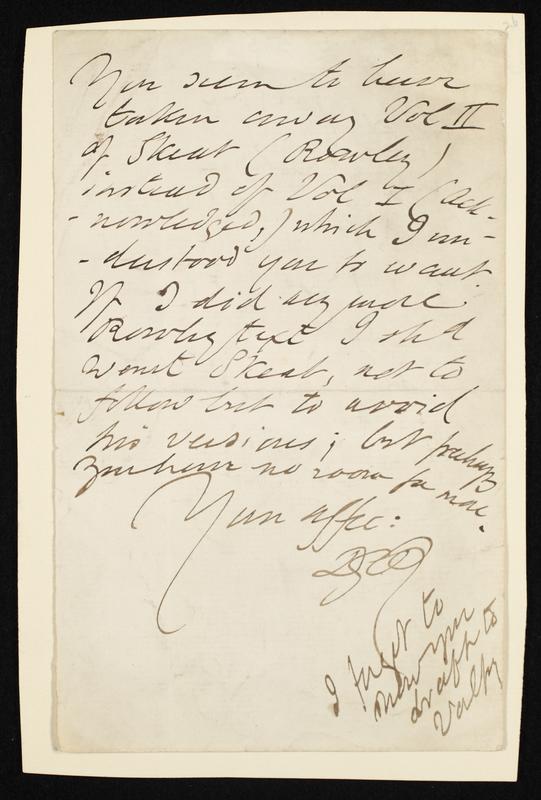 You seem to have
taken away Vol II
of Skeat (Rowley)
instead of Vol I (Ack-
-nowledged,) which I un-
-derstood you to want.
If I did any more
Rowley text I shd
want Skeat, not to
follow but to avoid
his versions; but perhaps
you have no room for more.
Your affec:
DGR
I forget to
show you
draft to
Valpy
26